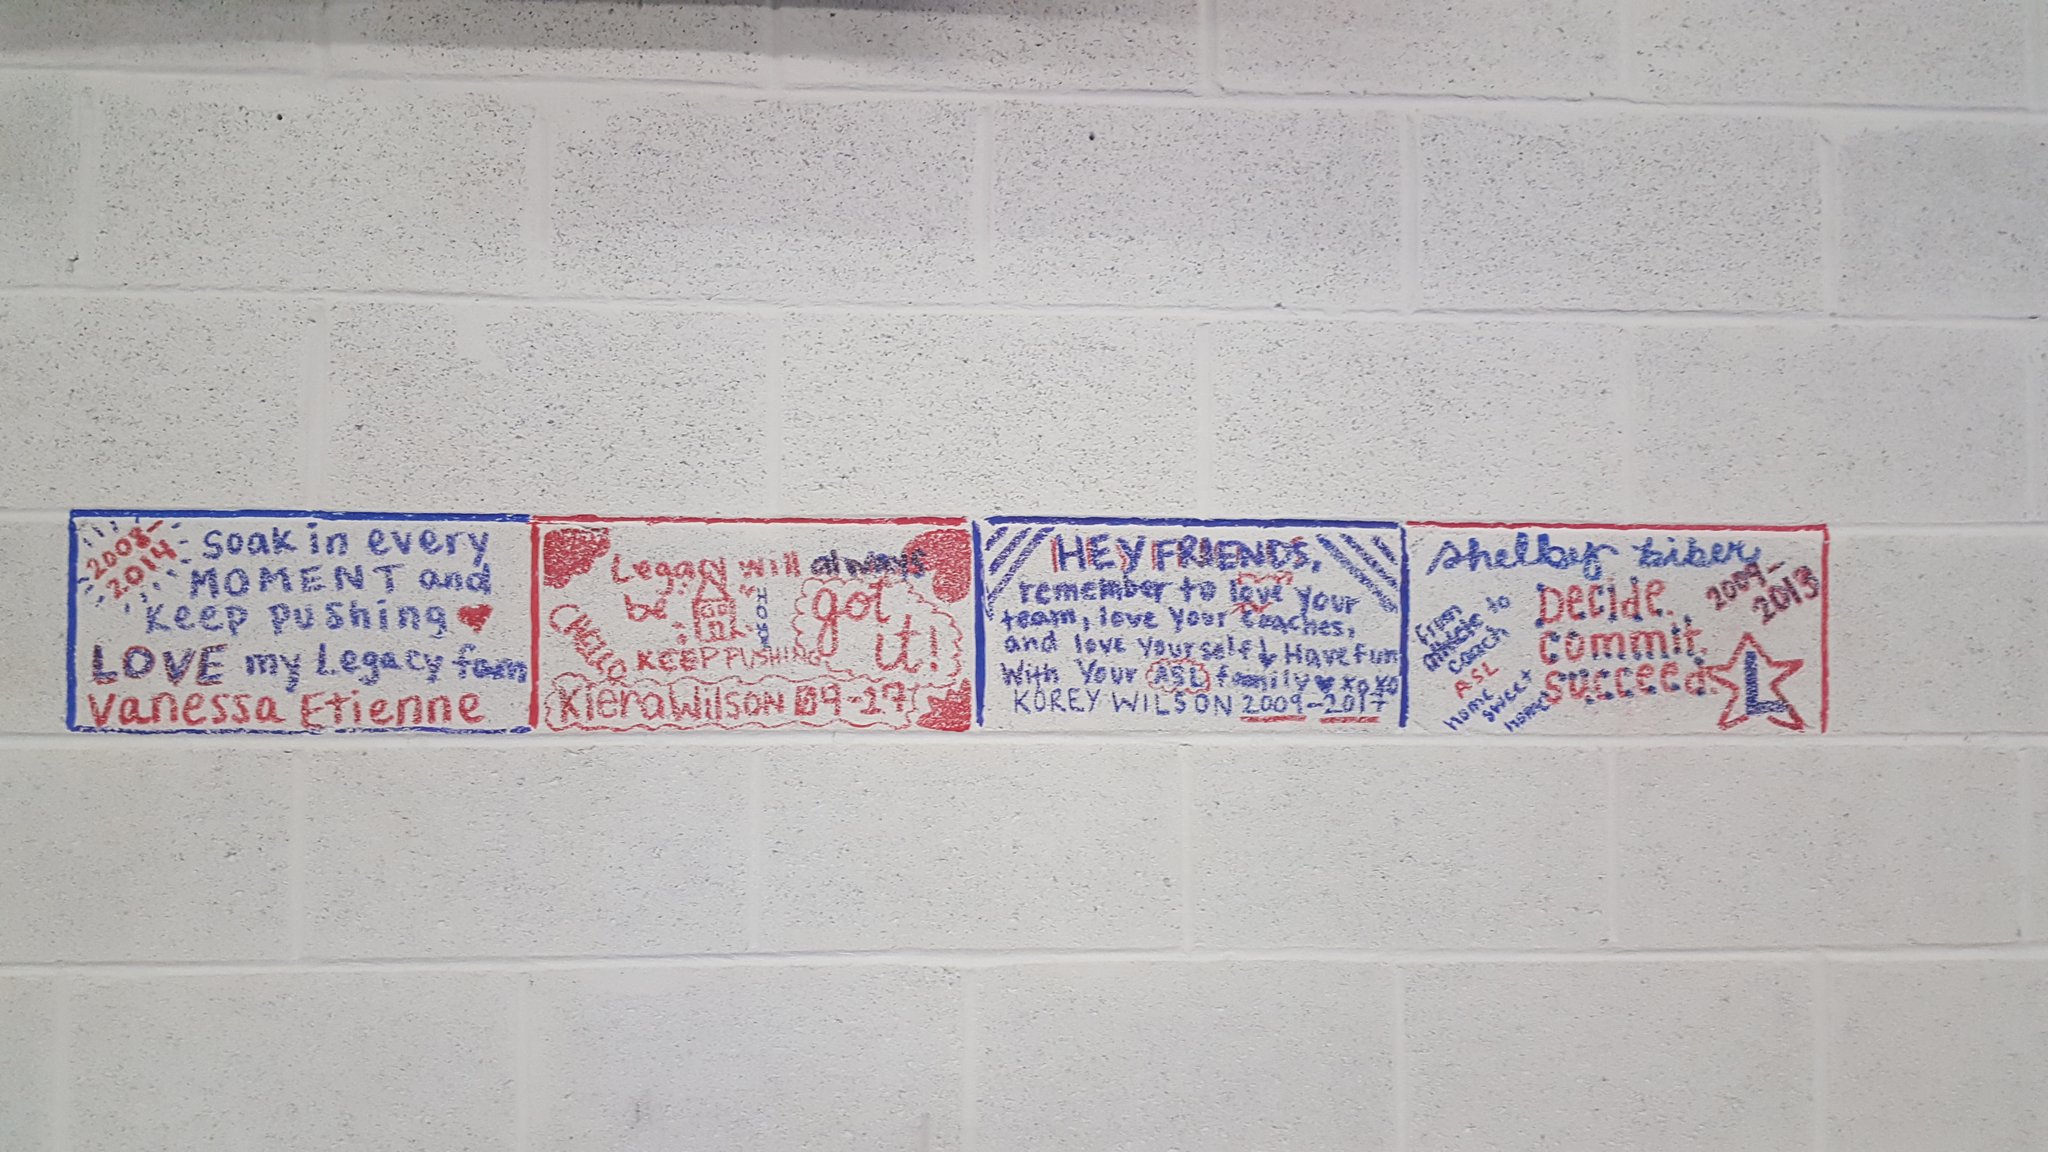 2008
2014
Soak in every
MOMENT and
Keep pushing
LOVE my Legacy fam
Vanessa Etienne
Legacy will always
be
HOME
got
it!
KEEP PUSHING
Kiera Wilson 09-17
HEY FRIENDS,
remember to love your
team, love your coaches,
and love yourself Have fun
With Your ASL family xoxo
KOREY WILSON 2009-2017
shelby biber
2009-
2013
Decide.
commit.
succeed.
from
athlete to
coach
ASL
home
sweet
home
L